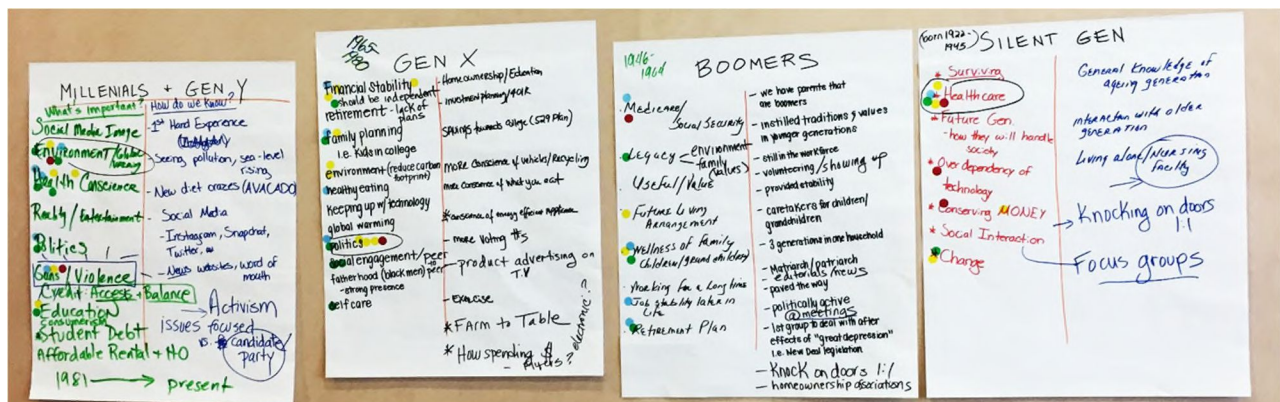 MILLENIALS + GEN Y
What's important?
Social Media Image
Environment/Global
Warming
Health Conscience
Reality/Entertainment
Politics
Guns/Violence
Credit: Access + Balance
Education
Consumerism
Student Debt
Affordable Rental + HO
1981 → present
How do we know?
- 1st Hand Experience
- Seeing, pollution, sea-level
rising
- New diet crazes (AVACADO)
- Social Media
- Instagram, Snapchat,
Twitter,
- News websites, word of
mouth
→ Activism
issues focused
vs. candidate/
party
1965
GEN X
Financial Stability
should be independent
retirement - lack of
plans
family planning
i.e. Kids in college
environment (reduce carbon
footprint)
healthy eating
Keeping up w/ technology
global warming
politics
social engagement/peer
to
peer
fatherhood (black men)
- strong presence
self care
- Home ownership/Education
- Investment planning/401K
savings towards college (529 Plan)
more conscience of vehicles/Recycling
more conscience of what you eat
* conscience of energy efficient appliance
- more voting #s
- product advertising on
T.V
- EXERCISE
* FARM to Table
* How spending $
electronic?
1946-
1964
BOOMERS
Medicare/
Social Security
Legacy < environment
family
(values)
Useful/Value
Future Living
Arrangement
Wellness of family
Children/grand children
Working for a long time
Job Stability later in
Life
Retirement Plan
- we have parents that
are boomers
- instilled traditions & values
in younger generations
- still in the workforce
- volunteering/showing up
- provided stability
- caretakers for children/
grandchildren
- 3 generations in one household
- Matriarch/patriarch
- editorials/news
- paved the way
- politically active
@meetings
- 1st group to deal with after
effects of "great depression"
i.e. New Deal legislation
- Knock on doors 1:1
- homeownership associations
(born 1922-
1945)
SILENT GEN
* Surviving
* Healthcare
* Future Gen.
- how they will handle
society
* Over dependency of
technology
* Conserving MONEY
* Social Interaction
* Change
General Knowledge of
ageing generation
interaction with older
generation
Living alone/NURSING
facility
→ Knocking on doors
1:1
Focus groups